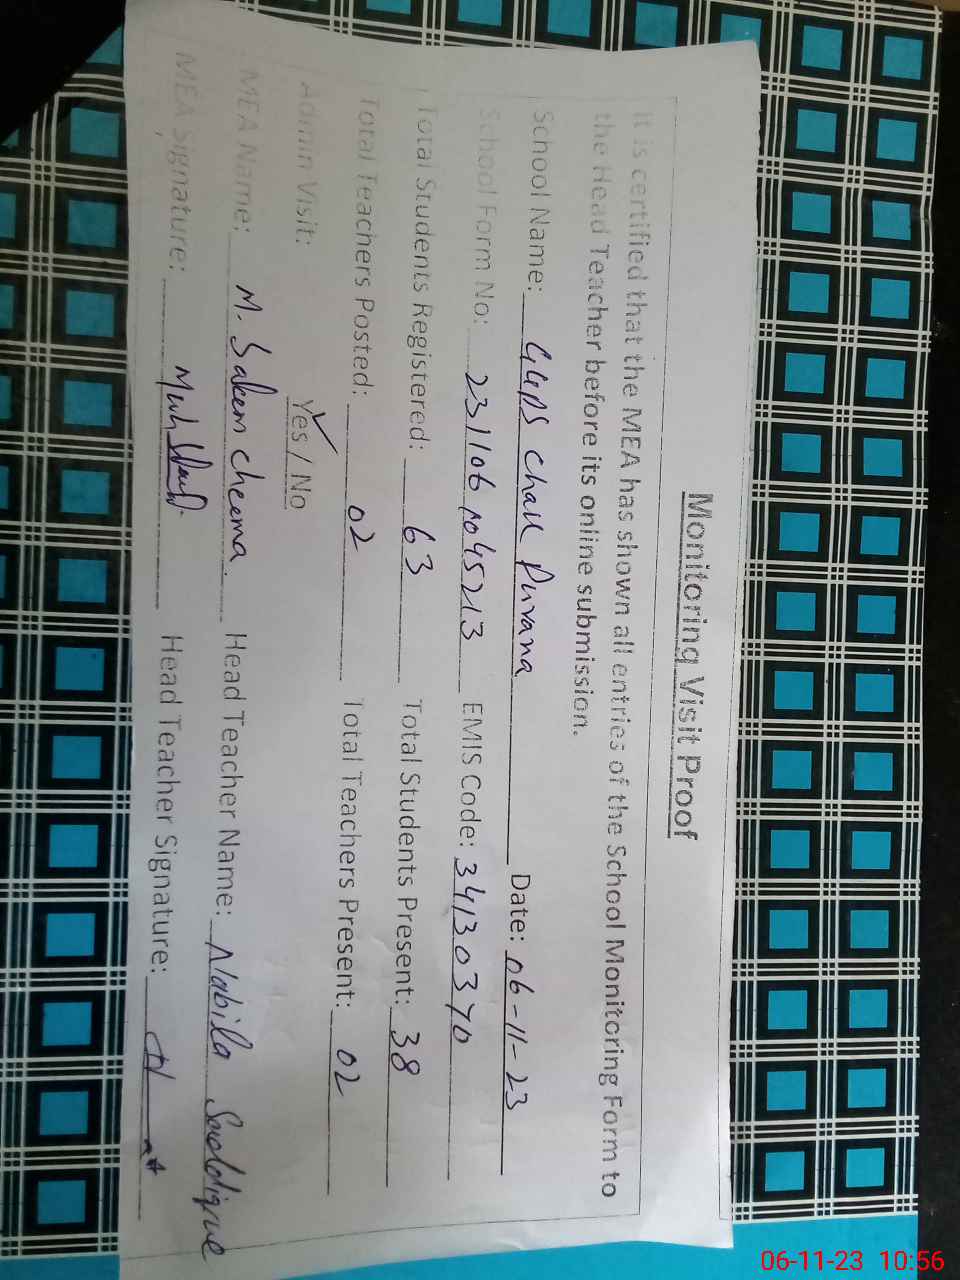 Monitoring Visit Proof
It is certified that the MEA has shown all entries of the School Monitoring Form to
the Head Teacher before its online submission.
School Name: GGPS Chak Purana Date: 06-11-23
School Form No: 231106 EMIS Code: 34130370
Total Students Registered: 63 Total Students Present: 38
Total Teachers Posted: 02 Total Teachers Present: 02
Admin Visit: Yes / No
MEA Name: M. Saleem cheema. Head Teacher Name: Nabila Saddique
MEA Signature: Head Teacher Signature:
06-11-23 10:56